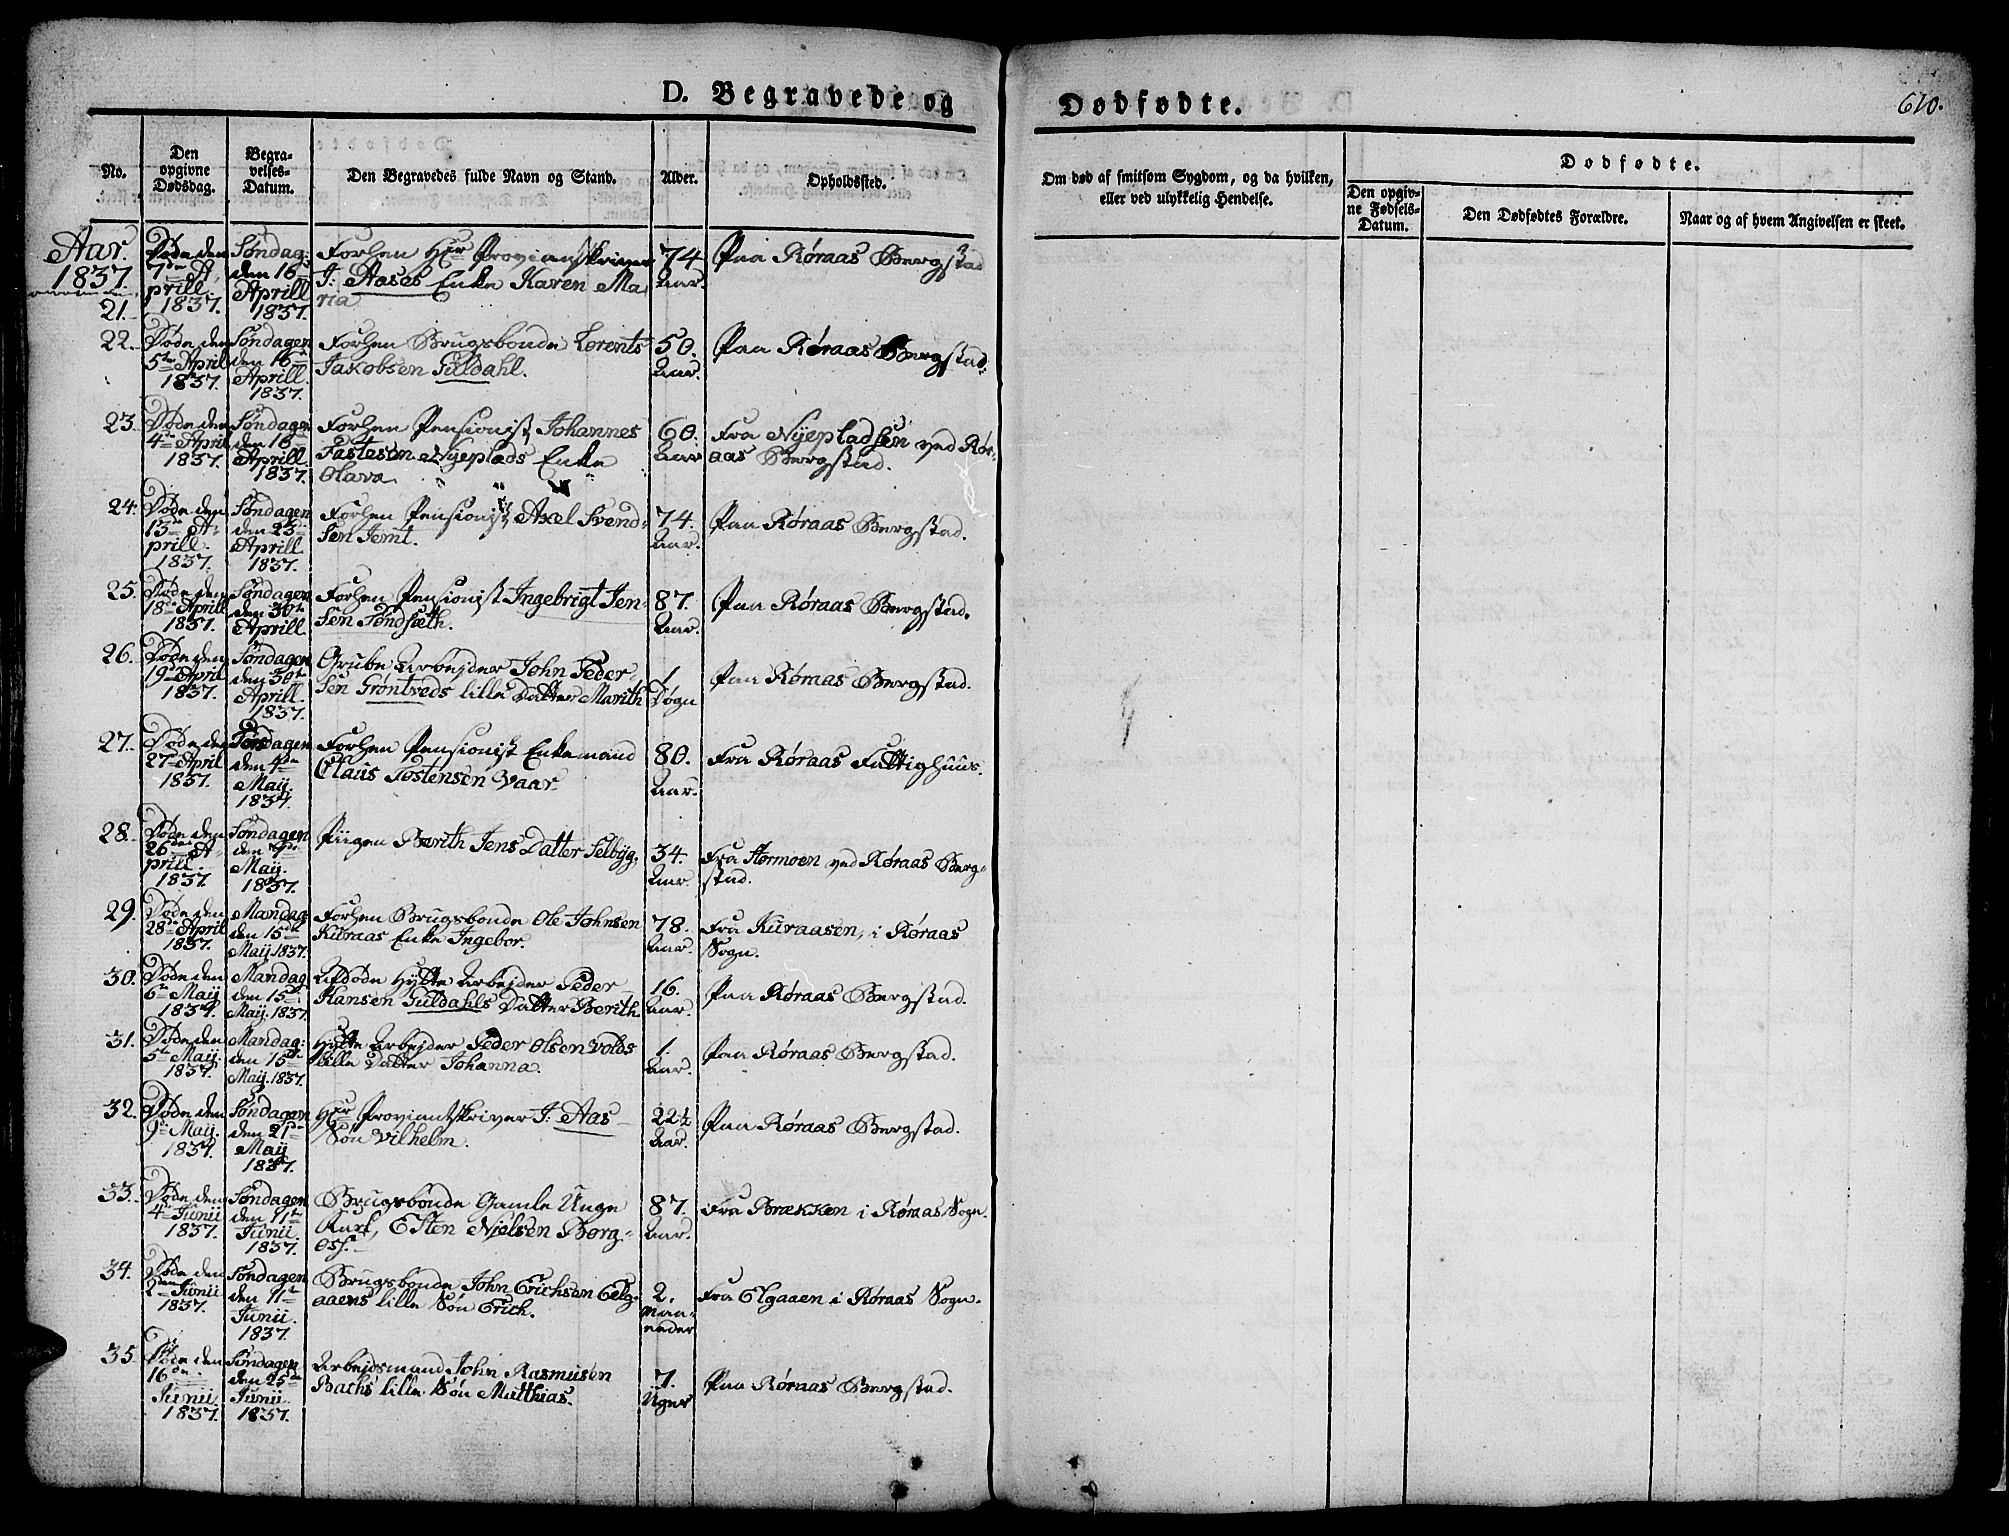 D. Begravede og Dødfødte.
610.
No.
Den opgivne Dødsdag.
Begravelses-Datum.
Den Begravedes fulde Navn og Stand.
Alder.
Opholdssted.
Om død af smitsom Sygdom, og da hvilken,
eller ved ulykkelig Hendelse.
Dødfødte.
Den opgivne Fødsels-Datum.
Den Dødfødtes Forældre.
Naar og af hvem Angivelsen er skeet.
Aar
1837.
21. Døde den 7de Aprill 1837. Søndag: den 16 Aprill 1837. Forhen Hr Proviantskriver J: Aases Enke Karen Maria 74 Aar. Paa Røraas Bergstad
22. Døde den 5te April 1837. Søndagen den 16 Aprill. 1837. Forhen Brugsbonde Lorents Jakobsen Guldahl. 50. Aar. Paa Røraas Bergstad.
23. Døde den 4de April 1837. Søndagen den 16 Aprill. 1837. Forhen Pensionist Johannes Fastesøn Nyeplads Enke Olava 60. Aar Fra Nyepladsen ved Røraas Bergstad.
24. Døde den 13de Aprill. 1837. Søndagen den 23 Aprill 1837. Forhen Pensionist Axel Svendsen Jemt. 74. Aar. Paa Røraas Bergstad.
25. Døde den 18de Aprill 1837. Søndagen den 30te Aprill. Forhen Pensionist Ingebrigt Jensen Tøndsæth. 87. Aar. Paa Røraas Bergstad.
26. Døde den 19de April 1837. Søndagen den 30te Aprill. 1837. Grube Arbejder John Pedersen Grøntveds lille Datter Marith 1. Døgn Paa Røraas Bergstad.
27. Døde den 27de April 1837. Torsdagen den 4de Maij. 1837. Forhen Pensionist Enkemand Claus Tostensen Vaar. 80. Aar. Fra Røraas Fattighuus.
28. Døde den 26de Aprill. 1837. Søndagen den 7de Maij. 1837. Piigen Berith Jens Datter Selbyg. 34. Aar. Fra Størmoen ved Røraas Bergstad.
29. Døde den 28de April 1837. Mandag den 15de Maij 1837. Forhen Brugsbonde Ole Johnsen Kuraas Enke Ingebor. 78. Aar. Fra Kuraasen, i Røraas Sogn.
30. Døde den 6te Maij 1837. Mandag den 15de Maij. 1837. Afdøde Hytte Arbejder Peder Hansen Guldahls Datter Berith. 16. Aar. Paa Røraas Bergstad.
31. Døde den 5te Maij. 1837. Mandag: den 15de Maij. 1837. Hytte Arbejder Peder Olsen Volds lille Datter Johanna. 1. Aar. Paa Røraas Bergstad.
32. Døde den 9de Maij. 1837. Søndagen den 21de Maij 1837. Hr Proviantskriver J: Aas Søn Vilhelm. 22½ Aar. Paa Røraas Bergstad.
33. Døde den 4de Junii 1837. Søndagen den 11te Junii. 1837. Brugsbonde Gamle Unge Karl, Esten Njelsen Borgos. 87. Aar. Fra Brækken i Røraas Sogn.
34. Døde den 2den Junii 1837. Søndagen den 11te Junii. 1837. Brugsbonde John Erichsen Elgaaens lille Søn Erich. 2. Maaneder Fra Elgaaen i Røraas Sogn.
35. Døde den 16de Junii. 1837. Søndagen den 25de Junii. 1837. Arbejdsmand John Rasmusen Bachs lille Søn Matthias. 7. Uger Paa Røraas Bergstad.